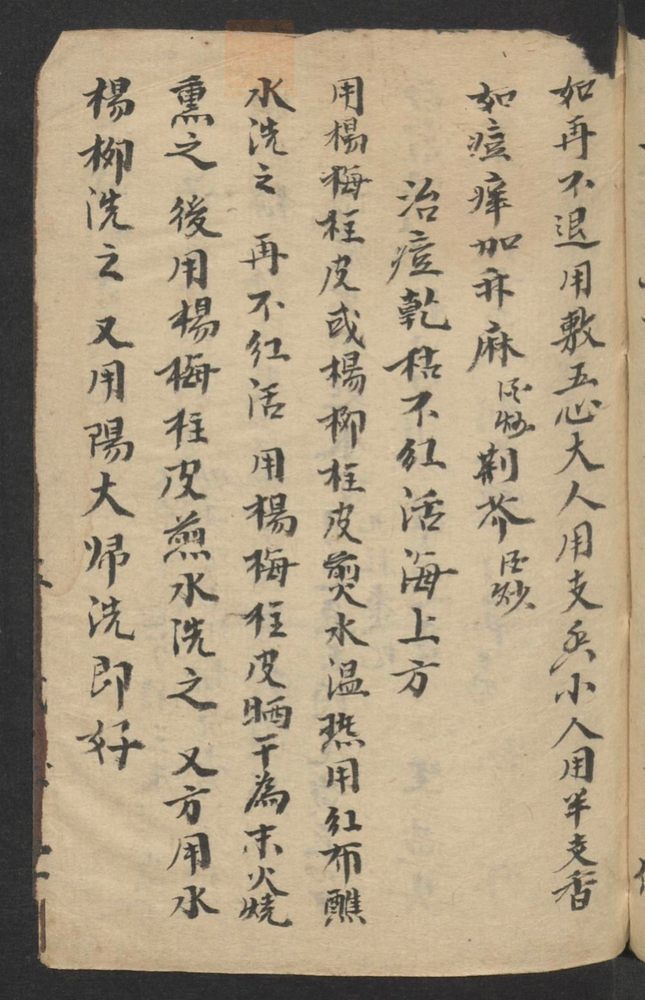 如再不退用敷五心大人用支香小人用半支香
如痘痒加升麻 酒炒 荆芥 酒炒
治痘乾枯不红活海上方
用楊梅桂皮或楊柳桂皮煎水温热用红布醮
水洗之 再不红活 用楊梅桂皮晒干為末火燒
熏之後用楊梅桂皮煎水洗之 又方用水
楊柳洗之 又用陽大归洗即好